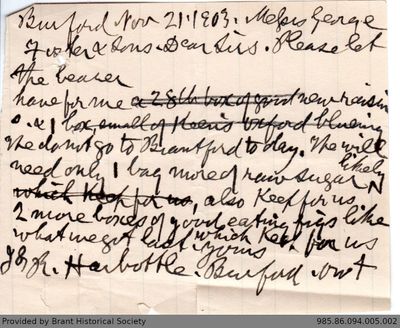 Burford Nov 21. 1909. Messrs George
Foster & Sons. Dear Sirs. Please let
the bearer
have for me a 28 lb box of good new raisin
s. & 1 box, small of Keen's oxford blueing
We do not go to Brantford today. We will likely
need only 1 bag more of raw sugar
which Keep for us, also Keep for us.
2 more boxes of good eating figs like
what we got last. which Keep for us
yours
Harbottle. Burford. Ont
Provided by Brant Historical Society
985.86.094.005.002